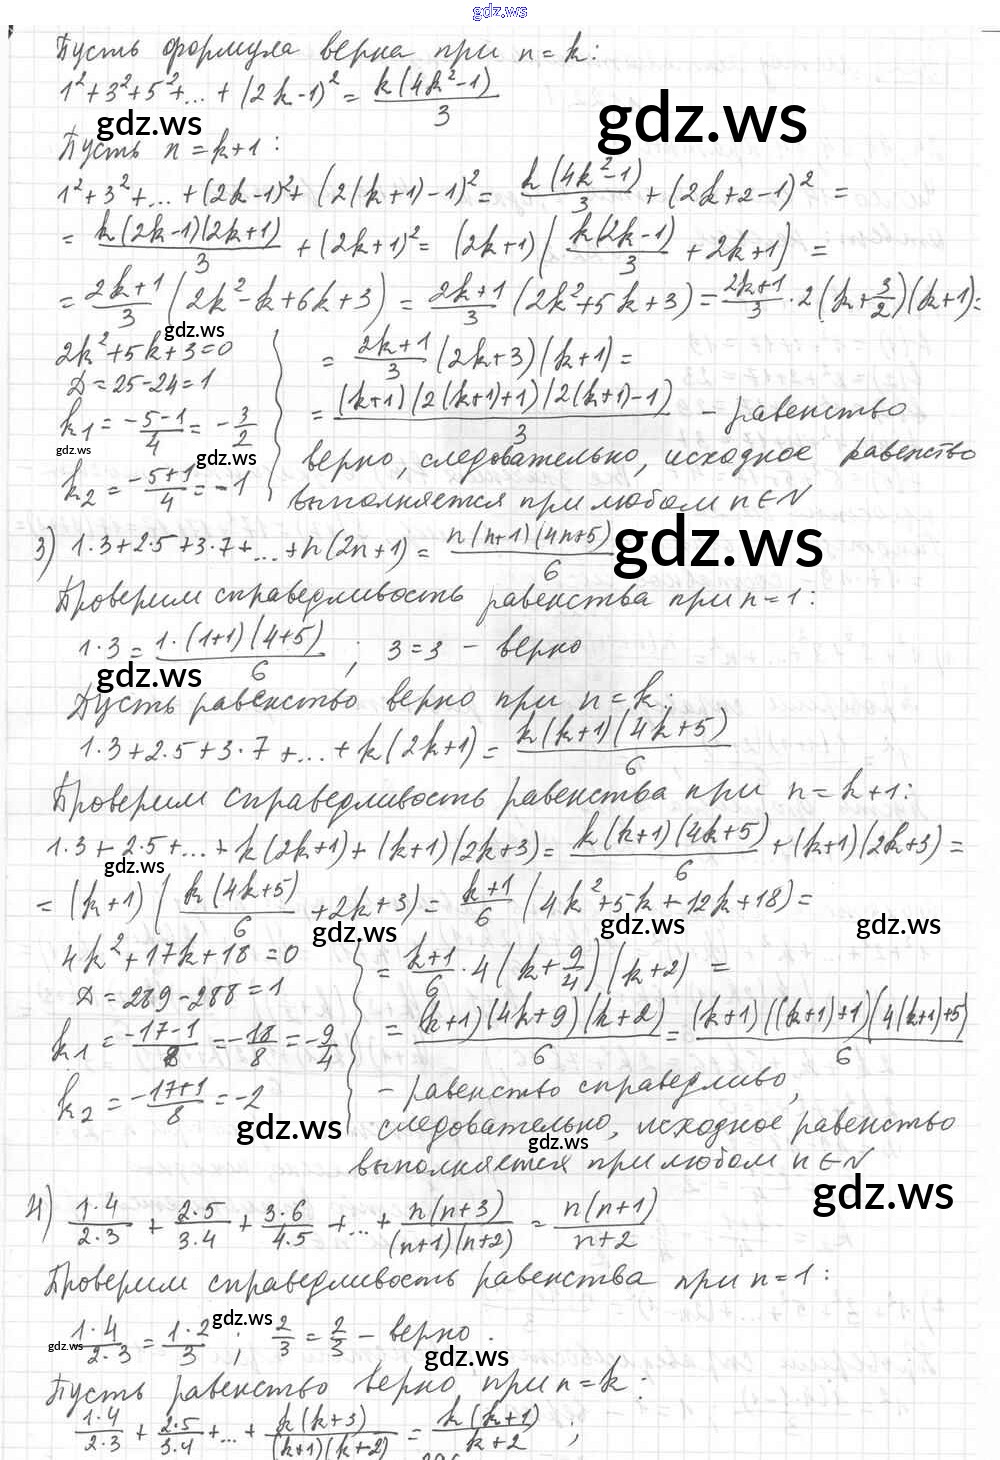 gdz.ws
Пусть формула верна при n=k:
1²+3²+5²+...+(2k-1)²= k(4k²-1)/3
gdz.ws gdz.ws
Пусть n=k+1:
1²+3²+...+(2k-1)²+(2(k+1)-1)²= k(4k²-1)/3 +(2k+2-1)² =
= k(2k-1)(2k+1)/3 +(2k+1)²= (2k+1)(k(2k-1)/3 +2k+1) =
= 2k+1/3 (2k²-k+6k+3) = 2k+1/3 (2k²+5k+3)= 2k+1/3 ·2(k+3/2)(k+1)=
gdz.ws
2k²+5k+3=0
Д=25-24=1
k₁= -5-1/4 = -3/2
gdz.ws gdz.ws
k₂= -5+1/4 =-1
= 2k+1/3 (2k+3)(k+1)=
= (k+1)(2(k+1)+1)(2(k+1)-1)/3 - равенство
верно, следовательно, исходное равенство
выполняется при любом n∈N
3) 1·3+2·5+3·7+...+n(2n+1)= n(n+1)(4n+5)/6
gdz.ws
Проверим справедливость равенства при n=1:
1·3= 1·(1+1)(4+5)/6 ; 3=3 - верно
gdz.ws
Пусть равенство верно при n=k:
1·3+2·5+3·7+...+k(2k+1)= k(k+1)(4k+5)/6
Проверим справедливость равенства при n=k+1:
1·3+2·5+...+k(2k+1)+(k+1)(2k+3)= k(k+1)(4k+5)/6 +(k+1)(2k+3)=
gdz.ws
= (k+1)(k(4k+5)/6 +2k+3)= k+1/6 (4k²+5k+12k+18)=
gdz.ws gdz.ws gdz.ws
4k²+17k+18=0
Д=289-288=1
k₁= -17-1/8 =-18/8 =-9/4
k₂= -17+1/8 =-2
gdz.ws
= k+1/6 ·4(k+9/4)(k+2) =
= (k+1)(4k+9)(k+2)/6 = (k+1)((k+1)+1)(4(k+1)+5)/6
- равенство справедливо,
следовательно, исходное равенство
gdz.ws
выполняется при любом n∈N
gdz.ws
4) 1·4/2·3 + 2·5/3·4 + 3·6/4·5 +...+ n(n+3)/(n+1)(n+2) = n(n+1)/n+2
Проверим справедливость равенства при n=1:
gdz.ws
1·4/2·3 = 1·2/3 ; 2/3 = 2/3 - верно.
gdz.ws gdz.ws
Пусть равенство верно при n=k:
1·4/2·3 + 2·5/3·4 +...+ k(k+3)/(k+1)(k+2) = k(k+1)/k+2 ;